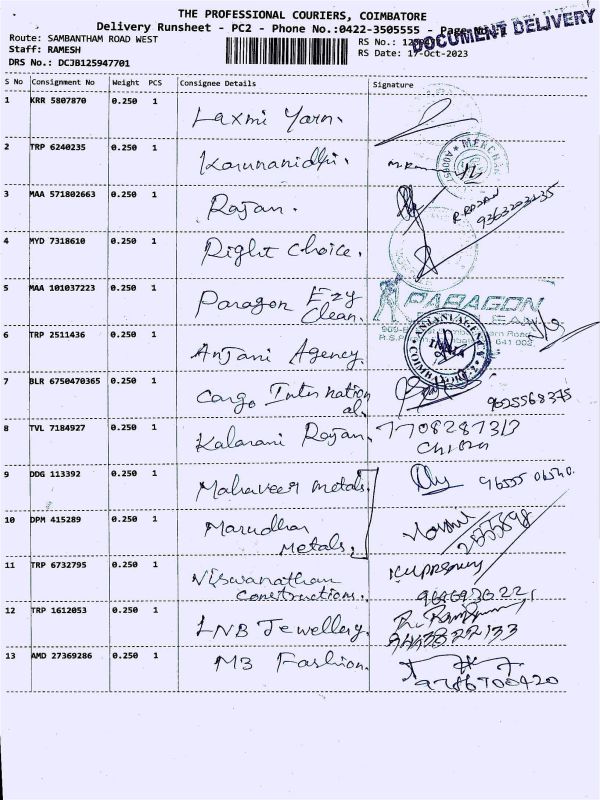 THE PROFESSIONAL COURIERS, COIMBATORE
Delivery Runsheet - PC2 - Phone No.:0422-3505555 - Page No.:
DOCUMENT DELIVERY
Route: SAMBANTHAM ROAD WEST
RS No.:
Staff: RAMESH
RS Date: 17-Oct-2023
DRS No.: DCJB125947701
S No Consignment No Weight PCS Consignee Details Signature
1 KRR 5807870 0.250 1 Laxmi Yarn.
2 TRP 6240235 0.250 1 Karunanidhi.
3 MAA 571802663 0.250 1 Rajan. R. RAJAN
4 MYD 7318610 0.250 1 Right Choice.
5 MAA 101037223 0.250 1 Paragon Ezy
Clean. PARAGON
641 002
6 TRP 2511436 0.250 1 Anjani Agency.
7 BLR 6750470365 0.250 1 Cargo Internation
al. 9625568375
8 TVL 7184927 0.250 1 Kalarani Rajan. 7708287313
9 DDG 113392 0.250 1 Mahaveer metals.
10 DPM 415289 0.250 1 Marudhar
Metals.
11 TRP 6732795 0.250 1 Viswanathan
Constructions.
12 TRP 1612053 0.250 1 LNB Jewellery.
13 AMD 27369286 0.250 1 M3 Fashion.
9786700420